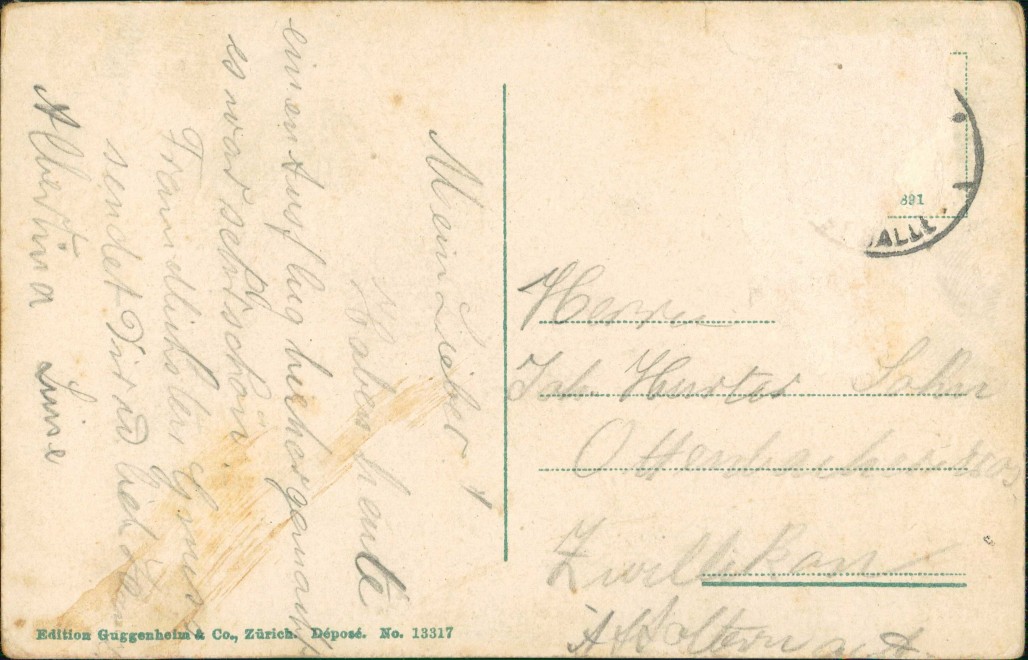 Mein Lieber!
Habe heute
einen Ausflug hierher gemacht
es war sehr schön.
Freundlichsten Gruss
sendet Dir
Albertina Luise
Herrn
Joh. Hurter Sohn
Ottenbacherstrass
Zwillikon
Affoltern a. A.
891
Edition Guggenheim & Co., Zürich. Déposé. No. 13317